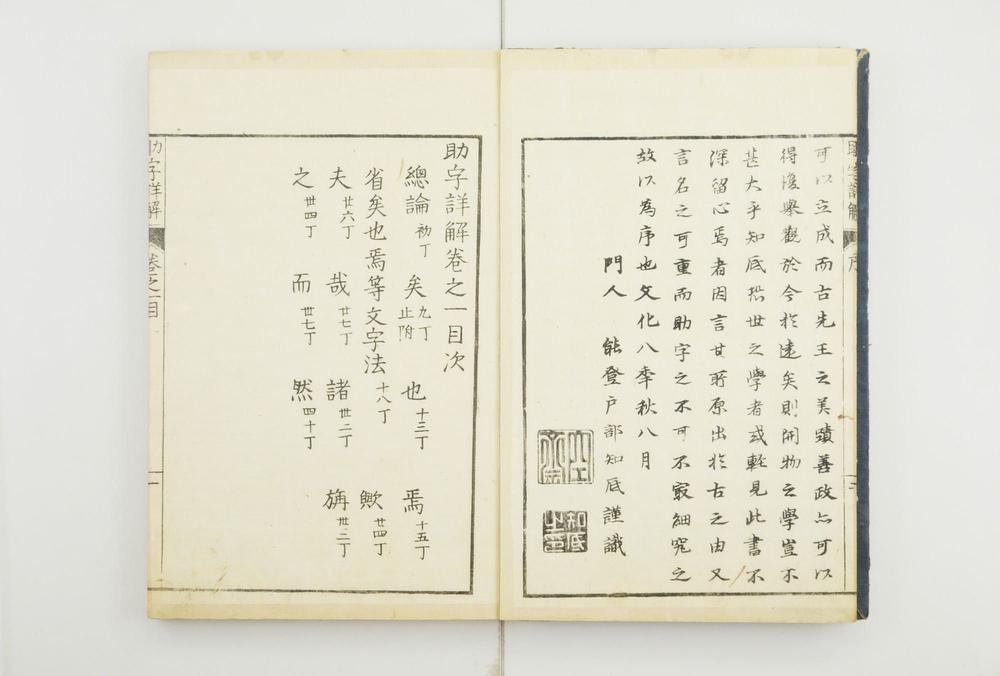 可以立成而古先王之美蹟善政亦可以
得復舉觀於今於遠矣則開物之學豈不
甚大乎知底恐世之學者或輕見此書不
深留心焉者因言其所原出於古之由又
言名之可重而助字之不可不最細究之
故以為序也文化八季秋八月
門人 能登戸部知底謹識
知底
助字詳解卷之一目次
總論 初丁 矣 九丁 止附 也 十三丁 焉 十五丁
省矣也焉等文字法 十八丁 歟 廿四丁
夫 廿六丁 哉 廿七丁 諸 丗二丁 旃 丗三丁
之 丗四丁 而 丗七丁 然 四十丁
助字詳解 卷之一目 一